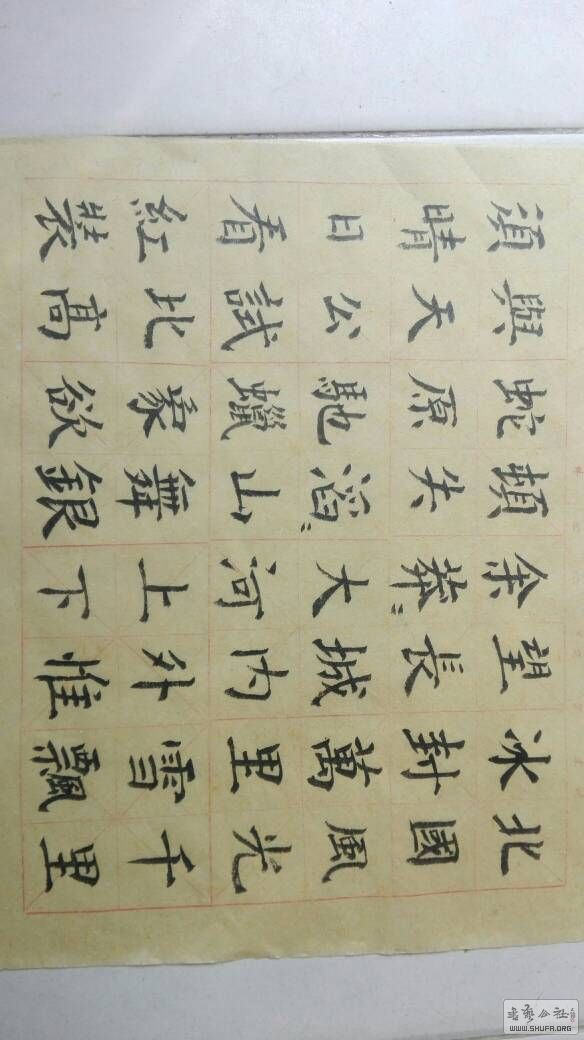 北國風光千里
冰封萬里雪飄
望長城内外惟
余莽〻大河上下
頓失滔〻山舞銀
蛇原馳蠟象欲
與天公試比高
須晴日看紅裝
書藝公社
WWW.SHUFA.ORG